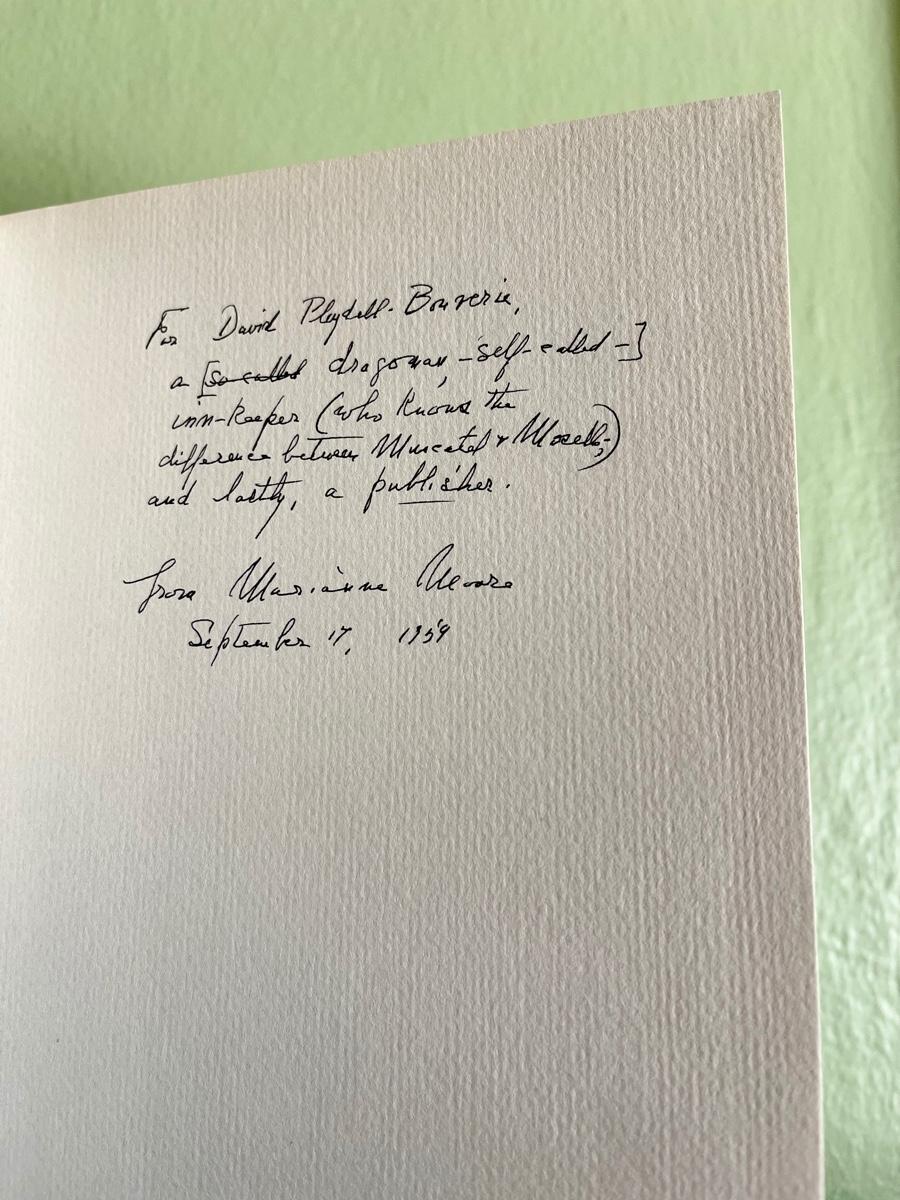 For David Pleydell-Bouverie,
a [so-called dragoman, -self-called-]
inn-keeper (who knows the
difference between Muscatel & Moselle)
and lastly, a publisher.
from Marianne Moore
September 17, 1959